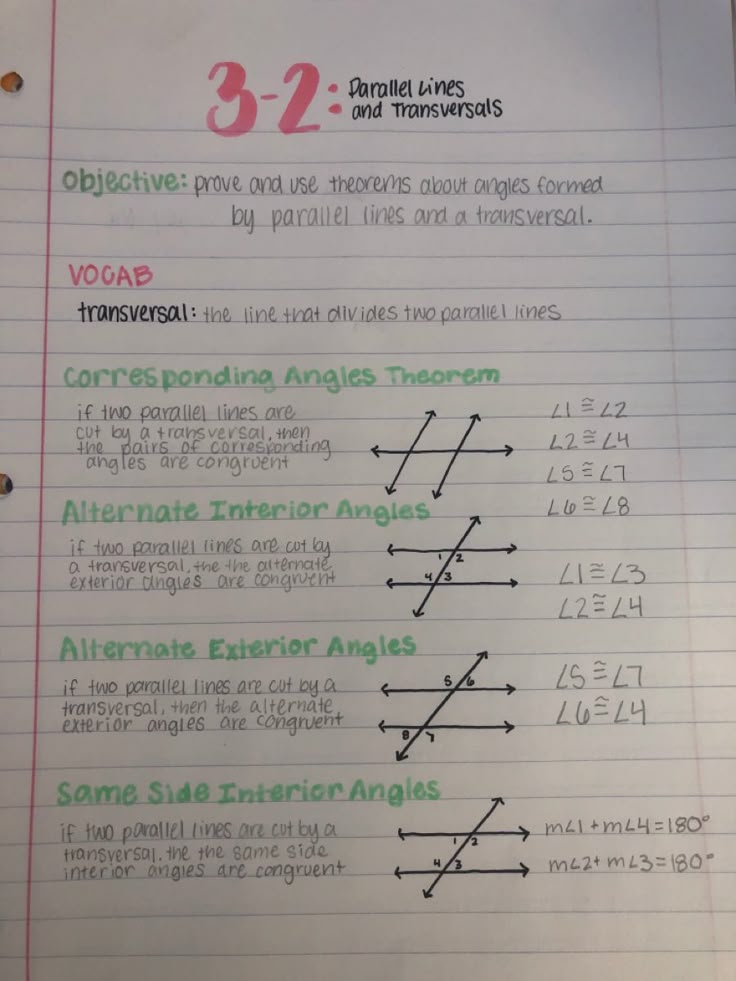 3-2: Parallel Lines
and Transversals
Objective: prove and use theorems about angles formed
by parallel lines and a transversal.
VOCAB
transversal: the line that divides two parallel lines
Corresponding Angles Theorem
if two parallel lines are
cut by a transversal, then
the pairs of corresponding
angles are congruent
∠1 ≅ ∠2
∠2 ≅ ∠4
∠5 ≅ ∠7
∠6 ≅ ∠8
Alternate Interior Angles
if two parallel lines are cut by
a transversal, the the alternate
exterior angles are congruent
1 2
4 3
∠1 ≅ ∠3
∠2 ≅ ∠4
Alternate Exterior Angles
if two parallel lines are cut by a
transversal, then the alternate
exterior angles are congruent
5 6
8 7
∠5 ≅ ∠7
∠6 ≅ ∠4
Same Side Interior Angles
if two parallel lines are cut by a
transversal, the the same side
interior angles are congruent
1 2
4 3
m∠1 + m∠4 = 180°
m∠2 + m∠3 = 180°